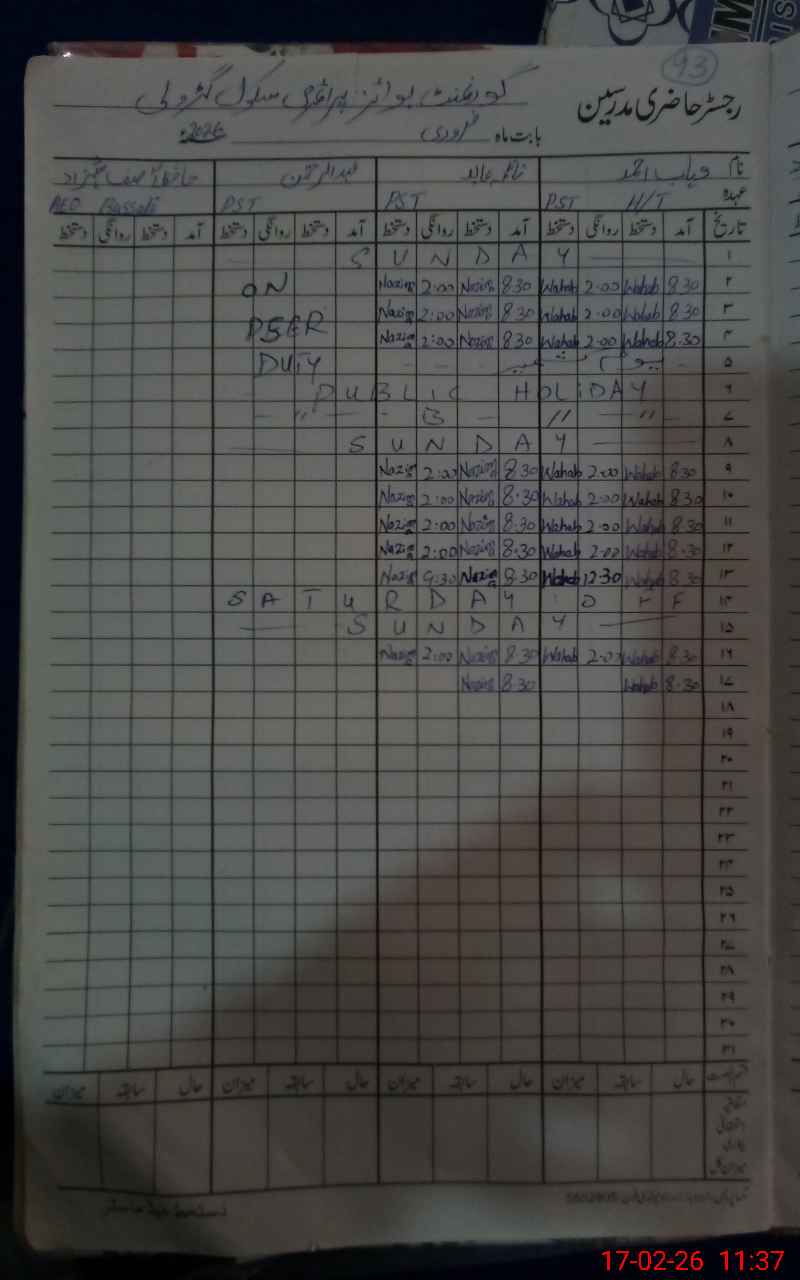 93
گورنمنٹ بوائز پرائمری سکول
رجسٹر حاضری مدرسین
بابت ماہ فروری 2026ء
نام وہاب احمد عبدالرحمن
عہدہ PST H/T PST PST AEO
تاریخ آمد دستخط روانگی دستخط آمد دستخط روانگی دستخط آمد دستخط روانگی دستخط آمد دستخط روانگی دستخط
۱ SUNDAY
۲ 8.30 Wahab 2.00 Wahab 8.30 Nazing 2:00 Nazing ON
۳ 8.30 Wahab 2.00 Wahab 8.30 Nazing 2:00 Nazing PSER
۴ 8.30 Wahab 2.00 Wahab 8.30 Nazing 2:00 Nazing
۵ یوم کشمیر DUTY
۶ PUBLIC HOLIDAY
۷ — " — B — // — " —
۸ SUNDAY
۹ 8.30 Wahab 2.00 Wahab 8.30 Nazing 2:00 Nazing
۱۰ 8.30 Wahab 2.00 Wahab 8.30 Nazing 2:00 Nazing
۱۱ 8.30 Wahab 2.00 Wahab 8.30 Nazing 2:00 Nazing
۱۲ 8.30 Wahab 2.00 Wahab 8.30 Nazing 2:00 Nazing
۱۳ 8.30 Wahab 12.30 Wahab 8.30 Nazing 9:30 Nazing
۱۴ SATURDAY OFF
۱۵ SUNDAY
۱۶ 8.30 Wahab 2.00 Wahab 8.30 Nazing 2:00 Nazing
۱۷ 8.30 Wahab 8.30 Nazing
۱۸
۱۹
۲۰
۲۱
۲۲
۲۳
۲۴
۲۵
۲۶
۲۷
۲۸
۲۹
۳۰
۳۱
حال سابقہ میزان حال سابقہ میزان حال سابقہ میزان حال سابقہ میزان
اتفاقی
بیماری
میزان کل
دستخط ہیڈ ماسٹر
17-02-26 11:37